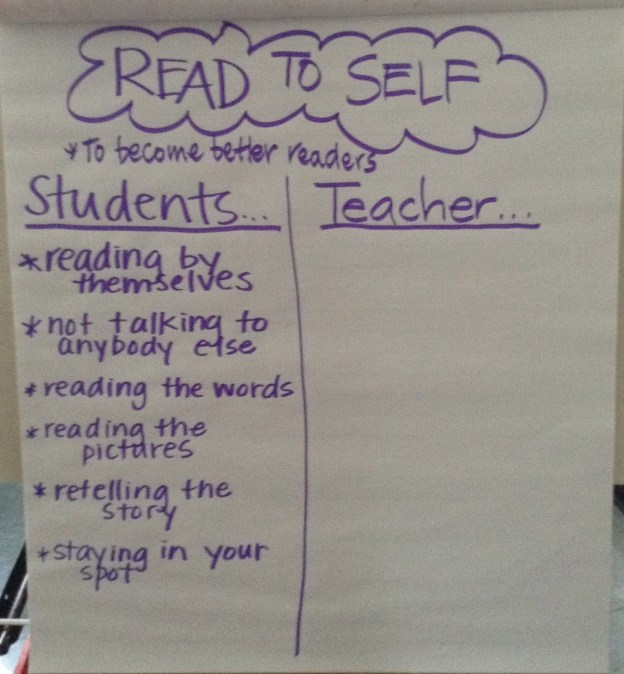 READ TO SELF
*To become better readers
Students...
*reading by
themselves
*not talking to
anybody else
*reading the words
*reading the
pictures
*retelling the
story
*staying in your
spot
Teacher...